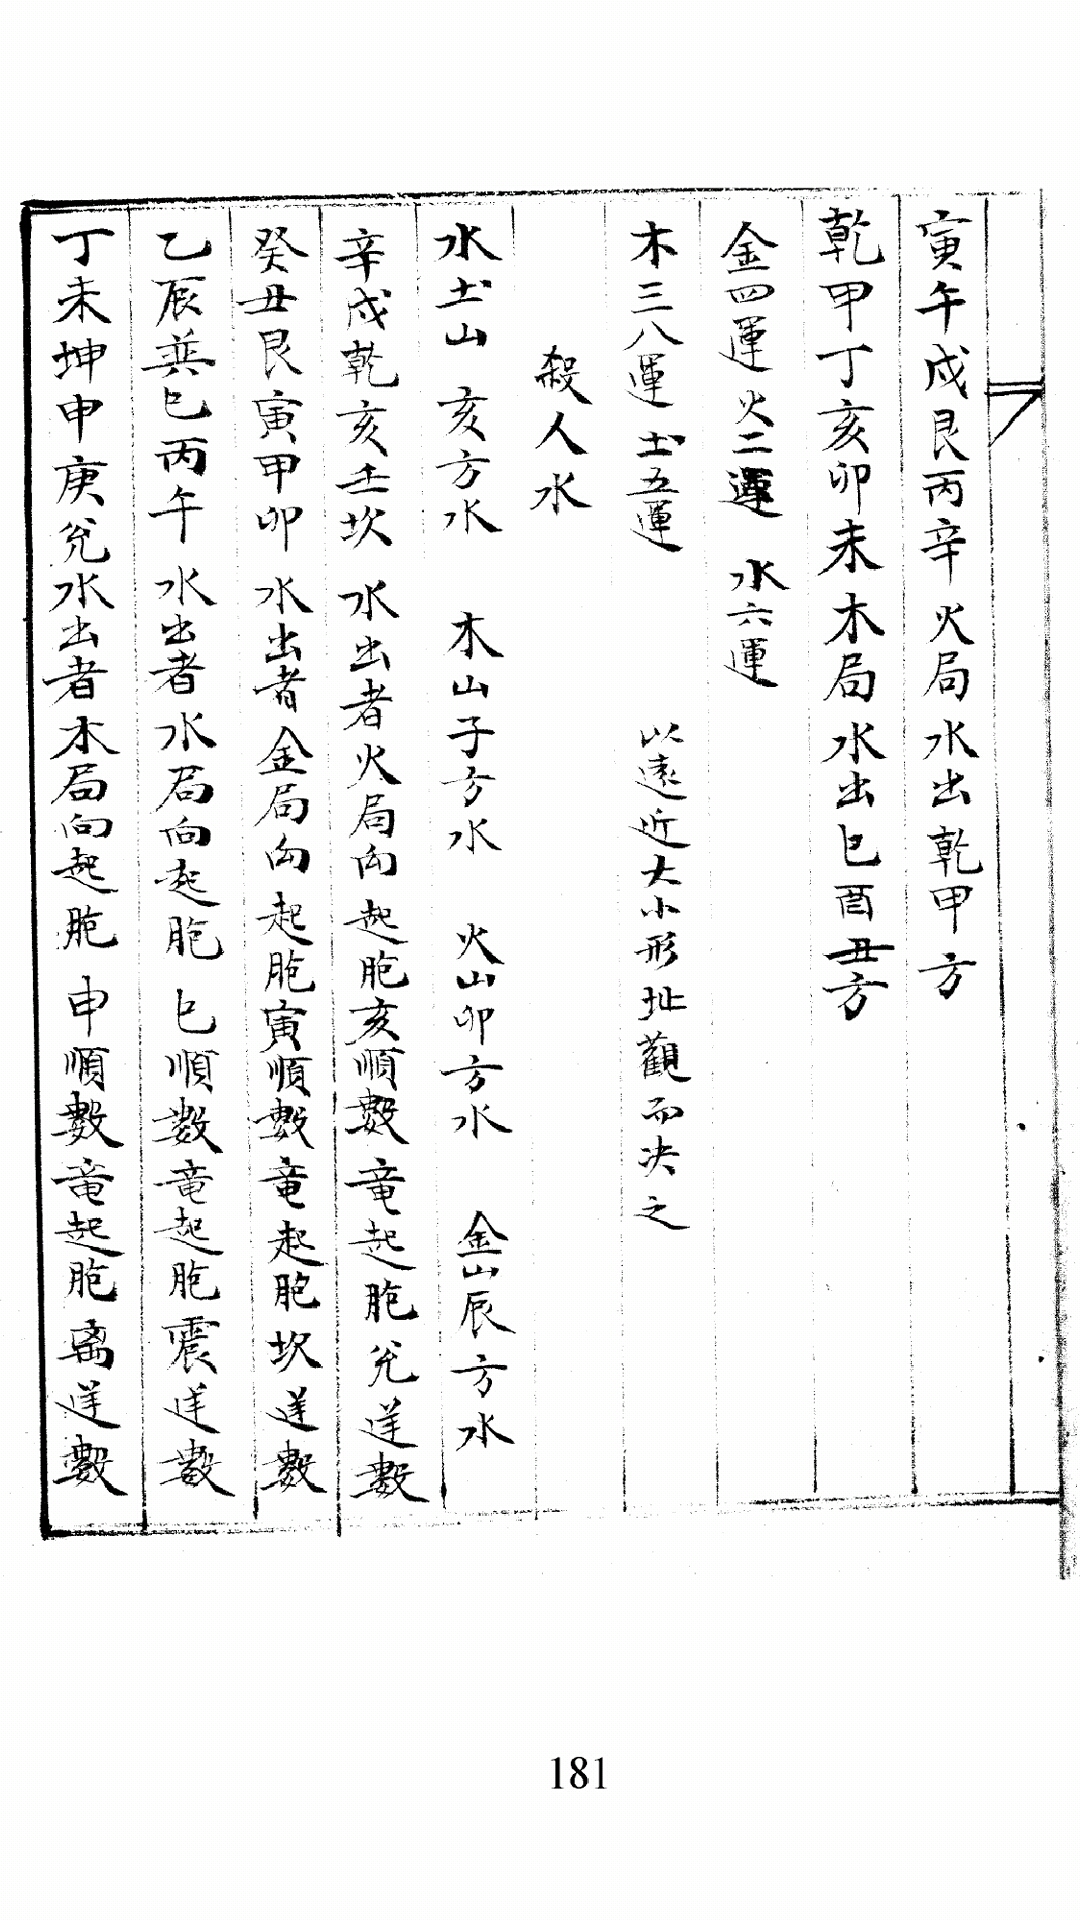 寅午戌艮丙辛火局水出乾甲方
乾甲丁亥卯未木局水出巳酉丑方
金四運 火二運 水六運
木三八運 土五運 以遠近大小形址觀而决之
殺人水
水土山亥方水 木山子方水 火山卯方水 金山辰方水
辛戌乾亥壬坎 水出者火局向起胞亥順數竜起胞兌逆數
癸丑艮寅甲卯 水出者金局向起胞寅順數竜起胞坎逆數
乙辰巽巳丙午 水出者水局向起胞 巳順數竜起胞震逆數
丁未坤申庚兌水出者木局向起胞 申順數竜起胞离逆數
181